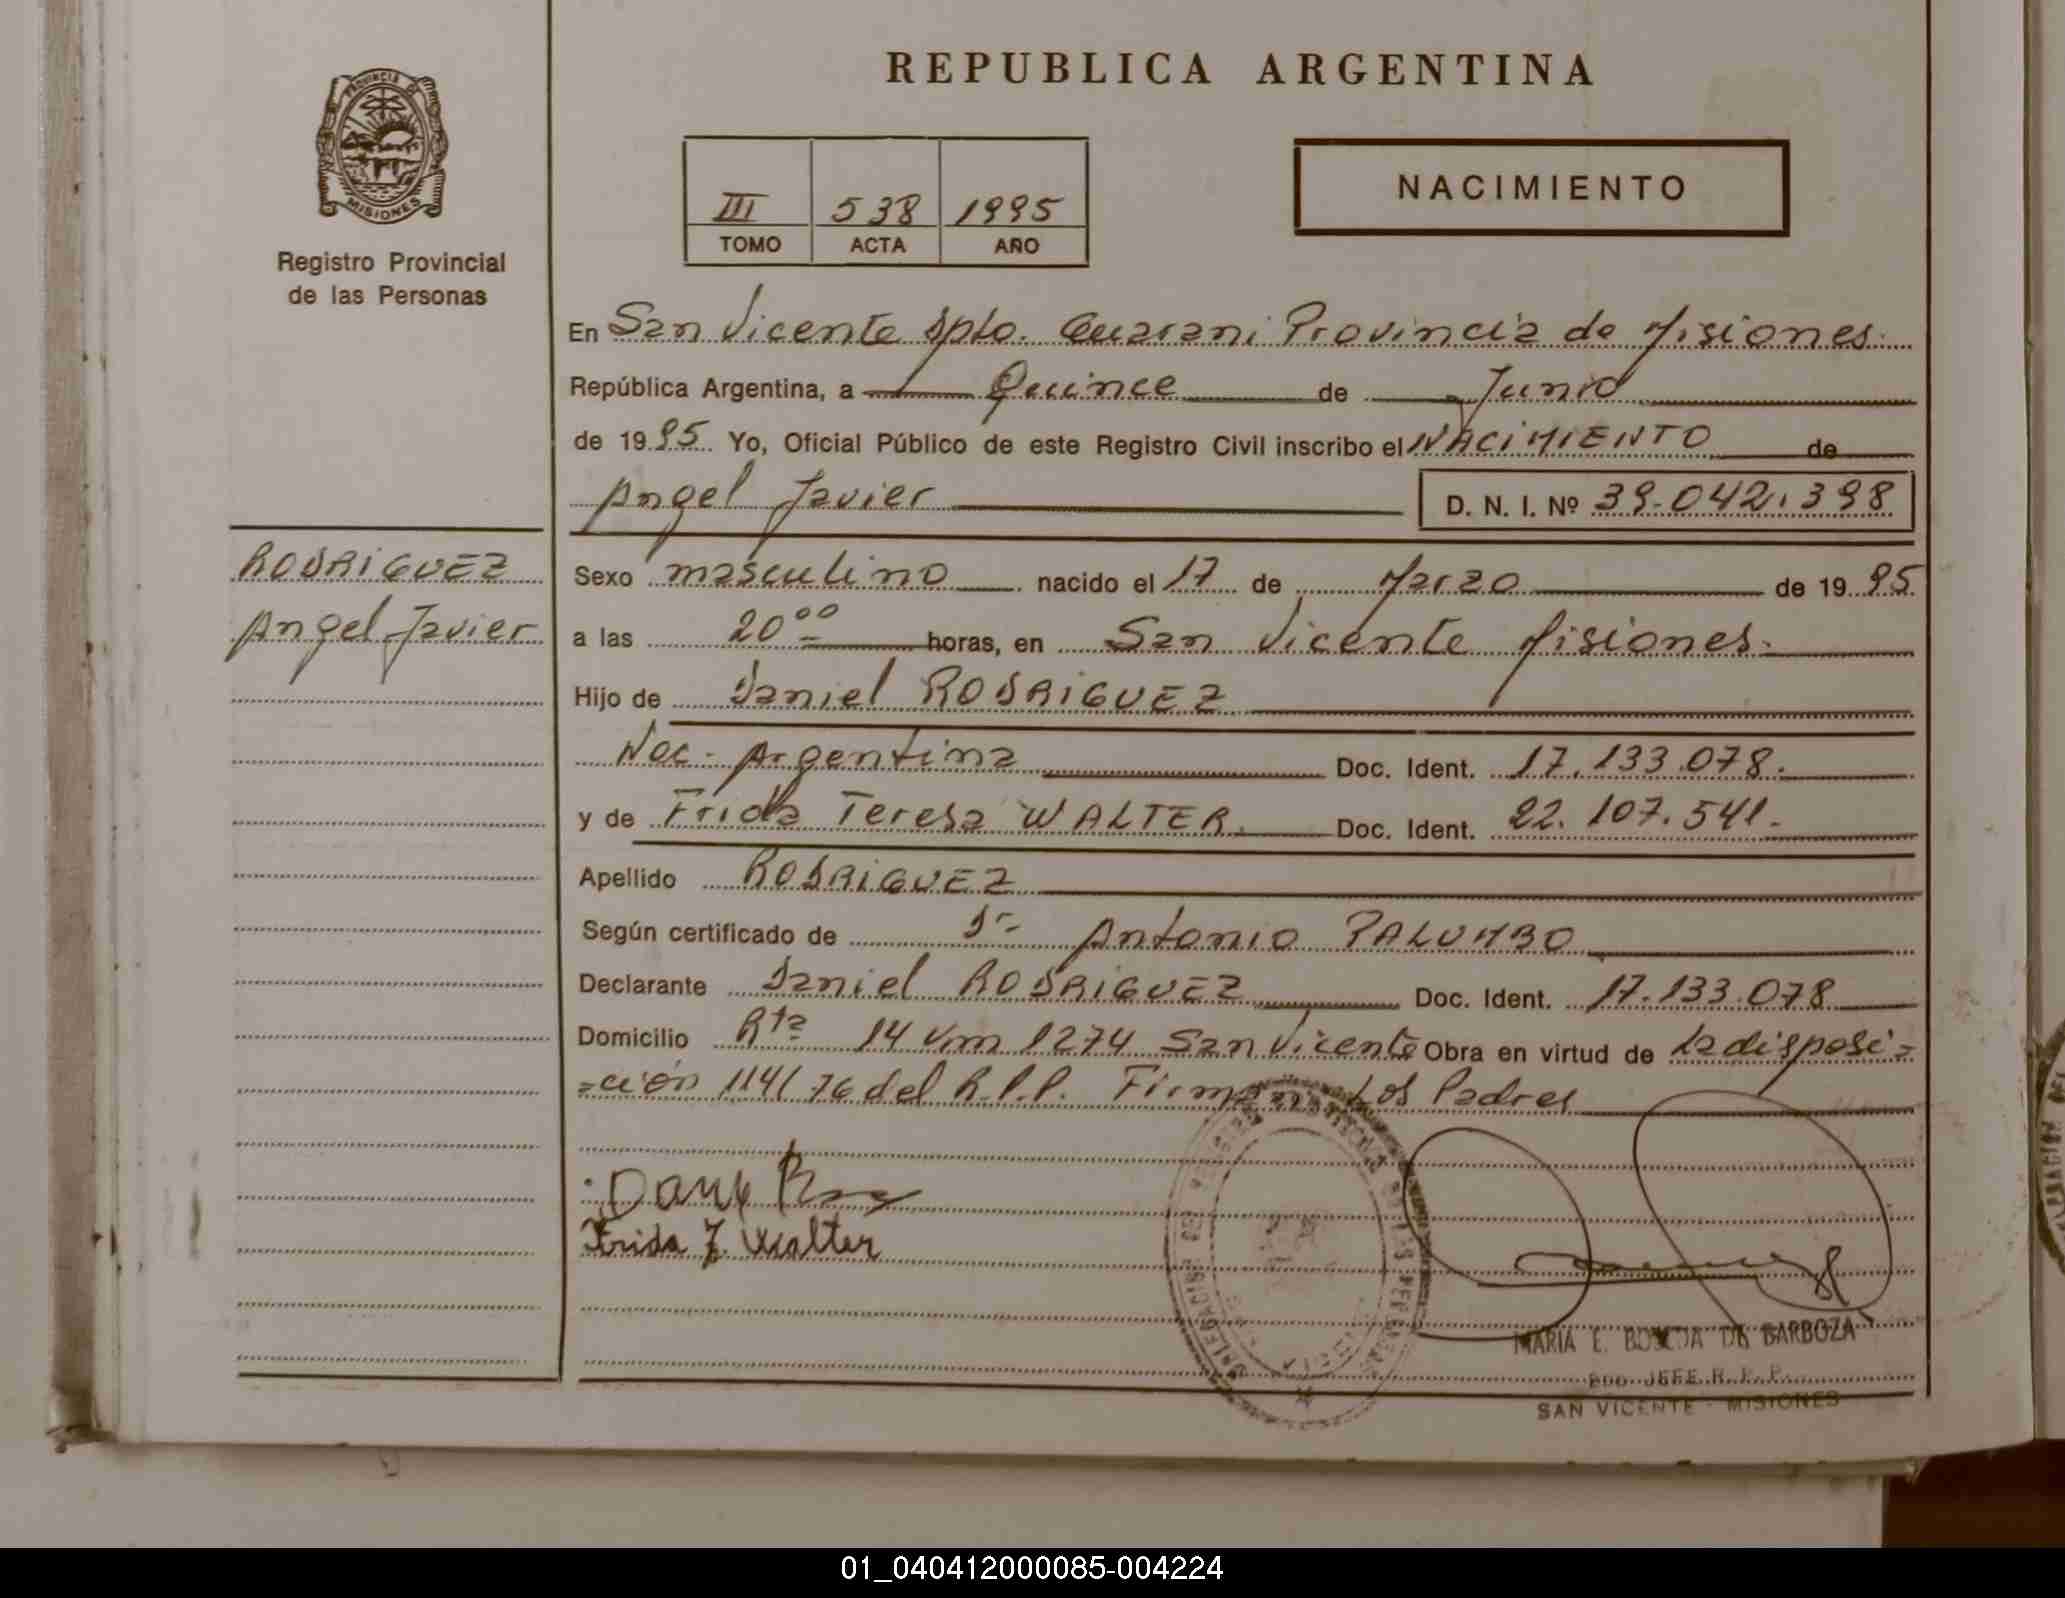 PROVINCIA DE
MISIONES
Registro Provincial
de las Personas
REPUBLICA ARGENTINA
III 538 1995
TOMO ACTA AÑO
NACIMIENTO
En San Vicente Dpto. Guarani Provincia de Misiones.
República Argentina, a Quince de Junio
de 1995 Yo, Oficial Público de este Registro Civil inscribo el NACIMIENTO de
Angel Javier D. N. I. Nº 39.042.398
RODRIGUEZ
Angel Javier
Sexo masculino nacido el 17 de Marzo de 1995
a las 20⁰⁰ horas, en San Vicente Misiones.
Hijo de Daniel RODRIGUEZ
Nac. Argentina Doc. Ident. 17.133.078.
y de Frida Teresa WALTER. Doc. Ident. 22.107.541.
Apellido RODRIGUEZ
Según certificado de Dr Antonio PALUMBO
Declarante Daniel RODRIGUEZ Doc. Ident. 17.133.078
Domicilio Rta 14 Km 1274 San Vicente Obra en virtud de La disposi=
=ción 114/76 del R.P.P. Firman Los Padres
Frida T. Walter
MARIA E. DE BARBOZA
JEFE R. P. P.
SAN VICENTE - MISIONES
01_040412000085-004224